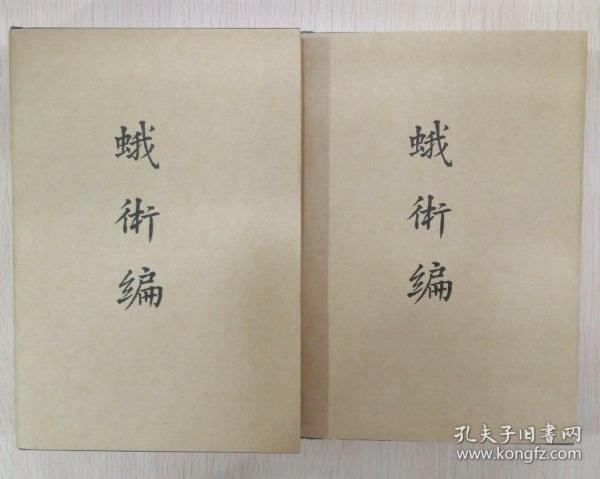 蛾術編
蛾術編
孔夫子旧書网
www.kongfz.com